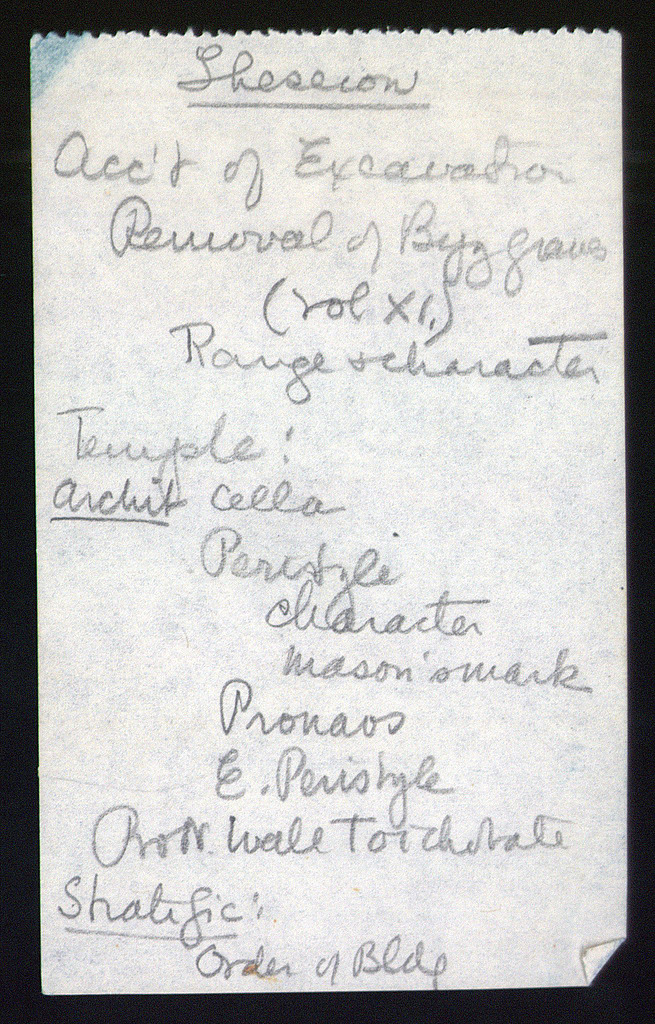 Theseion
Acc't of Excavation
Removal of Byz graves
(vol XI.)
Range & character
Temple:
Archit Cella
Peristyle
character
mason's mark
Pronaos
E. Peristyle
N. Wall Toichobate
Stratific:
Order of Bldg